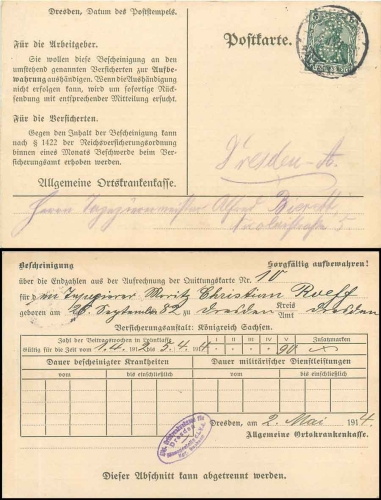 Dresden, Datum des Poststempels.
Für die Arbeitgeber.
Sie wollen diese Bescheinigung an den
umstehend genannten Versicherten zur Aufbe-
wahrung aushändigen. Wenn die Aushändigung
nicht erfolgen kann, wird um sofortige Rück-
sendung mit entsprechender Mitteilung ersucht.
Für die Versicherten.
Gegen den Inhalt der Bescheinigung kann
nach § 1422 der Reichsversicherungsordnung
binnen eines Monats Beschwerde beim Ver-
sicherungsamt erhoben werden.
Allgemeine Ortskrankenkasse.
Postkarte.
Dresden-A.
Herrn Tapezierermeister Alfred
5.
Bescheinigung
Sorgfältig aufbewahren!
über die Endzahlen aus der Aufrechnung der Quittungskarte Nr. 10
für den Tapezierer Moritz Christian
geboren am 26. September 82 zu Dresden Kreis Amt Dresden
Versicherungsanstalt: Königreich Sachsen.
Zahl der Beitragswochen in Lohnklasse
I II III IV V Zusatzmarken
Gültig für die Zeit vom 1.4. 1912 3.4. 14 90
Dauer bescheinigter Krankheiten
Dauer militärischer Dienstleistungen
vom bis einschließlich vom bis einschließlich
Dresden, am 2. Mai 1914
Allgemeine Ortskrankenkasse.
Dieser Abschnitt kann abgetrennt werden.